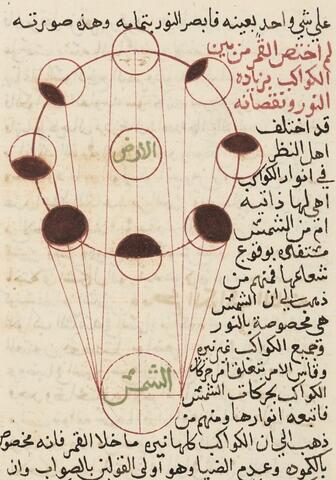 على شي واحد بعينه فابصر النور بتمامه وهذه صورته
مم اختص القمر من بين
الكواكب بزيادة
النور ونقصانه
قد اختلف
اهل النظر
في انوار الكواكب
اهي لها ذاتية
ام من الشمس
مستفادة بوقوع
شعاعها فمنهم من
ذهب الى ان الشمس
هي مخصوصة بالنور
وجميع الكواكب غير نيرة
وقاس الامر
الكواكب بحركات الشمس
فاتبعه انوارها ومنهم من
ذهب الى ان الكواكب كلها نيرة ما خلا القمر فانه مخصوص
بالكمودة وعدم الضيا وهو اولى القولين بالصواب وان
الارض
الشمس